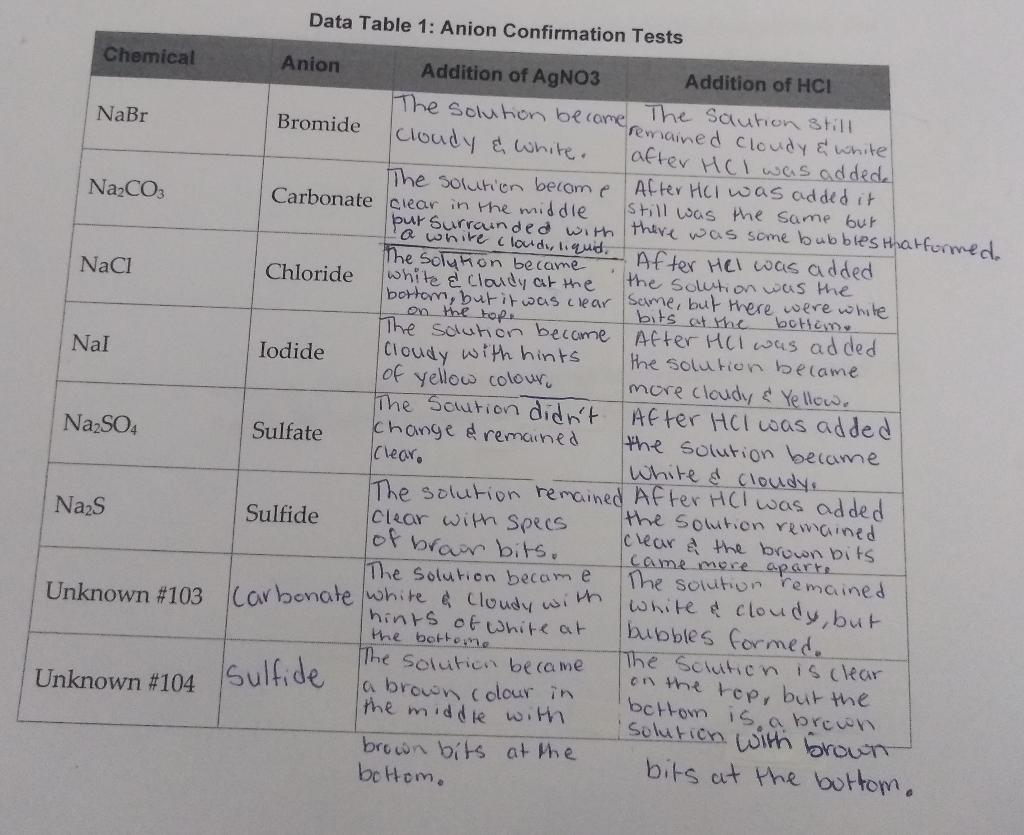 Data Table 1: Anion Confirmation Tests
Chemical Anion Addition of AgNO3 Addition of HCl
NaBr
Bromide
The Solution became
cloudy & white.
The Saution still
remained cloudy & white
after HCl was added.
Na₂CO₃
Carbonate
The solution become
clear in the middle
but surrounded with
a white cloudy liquid.
After HCl was added it
still was the same but
there was some bubbles that formed.
NaCl
Chloride
The Solution became
white & cloudy at the
bottom, but it was clear
on the top.
After HCl was added
the solution was the
same, but there were white
bits at the bottom.
NaI
Iodide
The solution became
cloudy with hints
of yellow colour.
After HCl was added
the solution became
more cloudy & Yellow.
Na₂SO₄
Sulfate
The Soution didn't
change & remained
clear.
After HCl was added
the solution became
white & cloudy.
Na₂S
Sulfide
The solution remained
clear with specs
of braon bits.
After HCl was added
the solution remained
clear & the brown bits
came more apart.
Unknown #103
Carbonate
The Solution became
white & cloudy with
hints of white at
the bottom.
The solution remained
white & cloudy, but
bubbles formed.
Unknown #104
Sulfide
The solution became
a brown colour in
the middle with
brown bits at the
bottom.
The Solution is clear
on the top, but the
bottom is a brown
solution with brown
bits at the bottom.